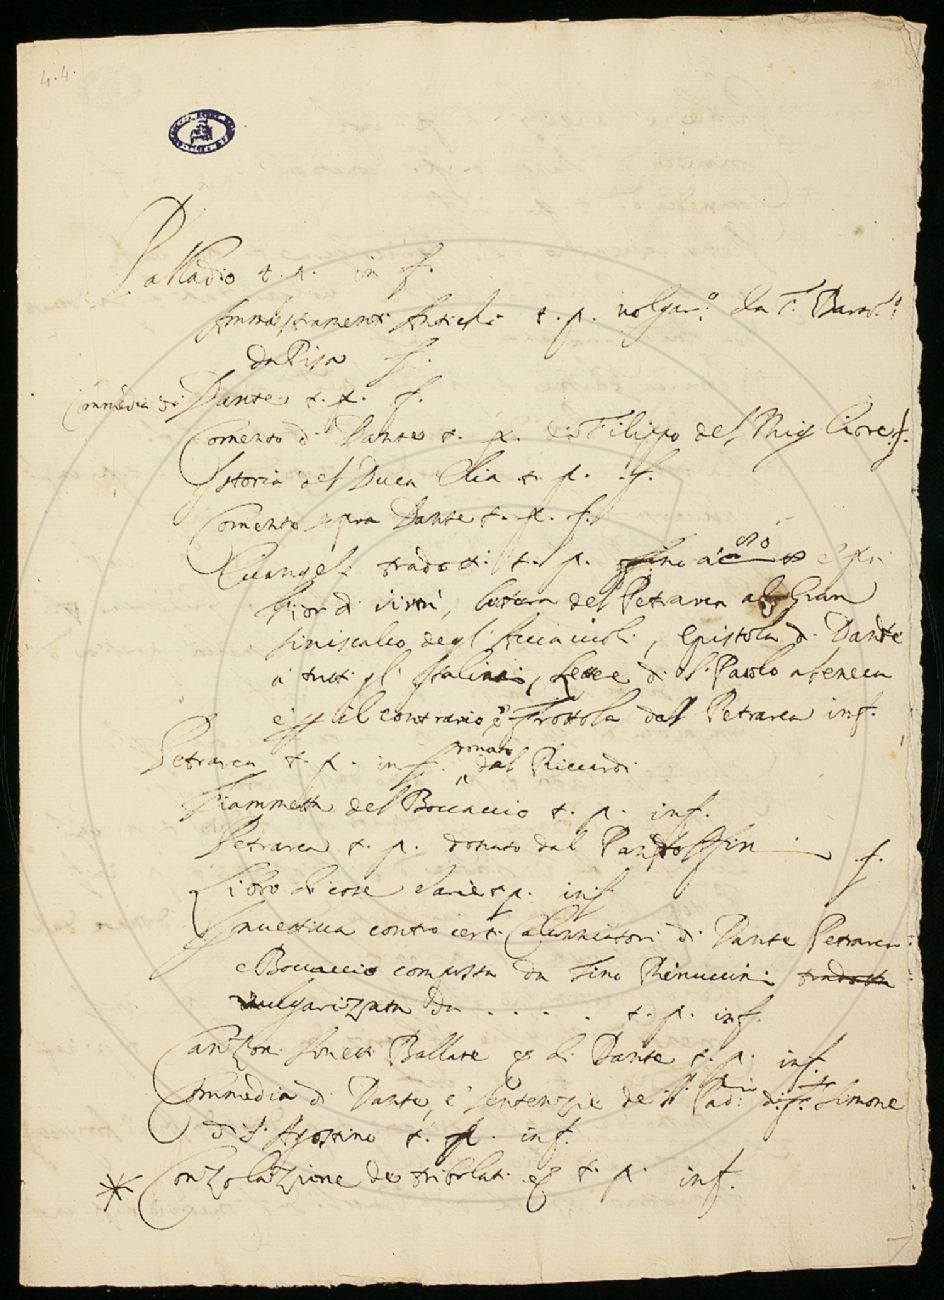 4.4.
Palladio t. p. in f.
Ammaestramenti Antichi t. p. volgar.º da F. Bart.º
da Pisa f.
Commedia di Dante t. p. f.
Comento di Dante t. p. di Filippo del Migliore f.
Istoria del Duca Elia t. p. f.
Comento sopra Dante t. p. f.
Euangeli tradotti t. p. sino a ciò e
Fior di virtù, lettera del Petrarca al Gran
Siniscalco degl'Acciaiuoli, Epistola di Dante
a tutti gl'Italiani, lettere di S. Paolo a Seneca
e il contrario, e Frottola del Petrarca inf.
Petrarca t. p. in f. donato dal Riccardi
Fiammetta del Boccaccio t. p. inf.
Petrarca t. p. donato dal Pandolfini f.
Libro di cose varie t. p. inf.
Inuettiua contro certi Calunniatori di Dante Petrarca
e Boccaccio composta da Cino Rinuccini tradotta
vulgarizzata da . . . . t. p. inf.
Canzoni Sonetti Ballate &c di Dante t. p. inf.
Commedia di Dante, e Sentenzie de SS. Padri di F. Simone
di S. Agostino t. p. inf.
* Consolazione de tribolati &c t. p. inf.